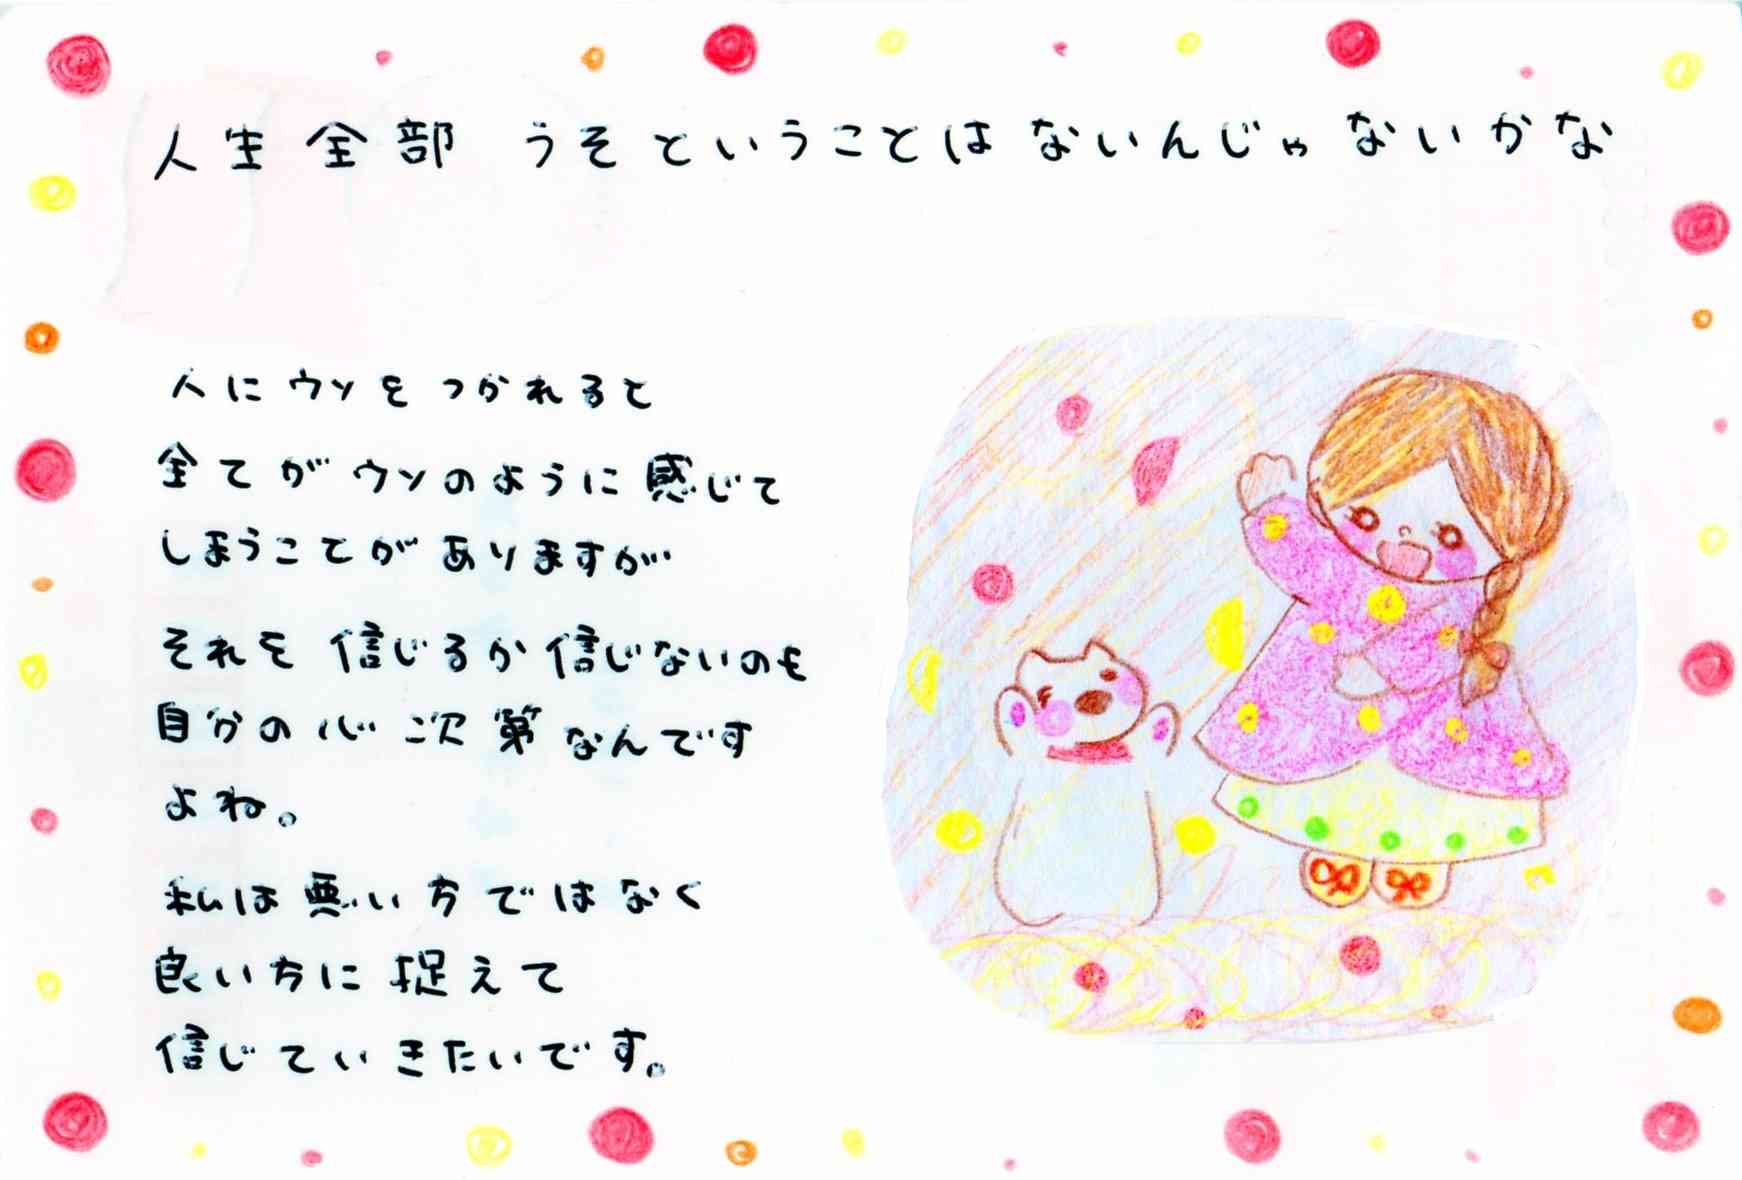 人生全部 うそということはないんじゃないかな
人にウソをつかれると
全てがウソのように感じて
しまうことがありますが
それを信じるか信じないのも
自分の心次第なんです
よね。
私は悪い方ではなく
良い方に捉えて
信じていきたいです。